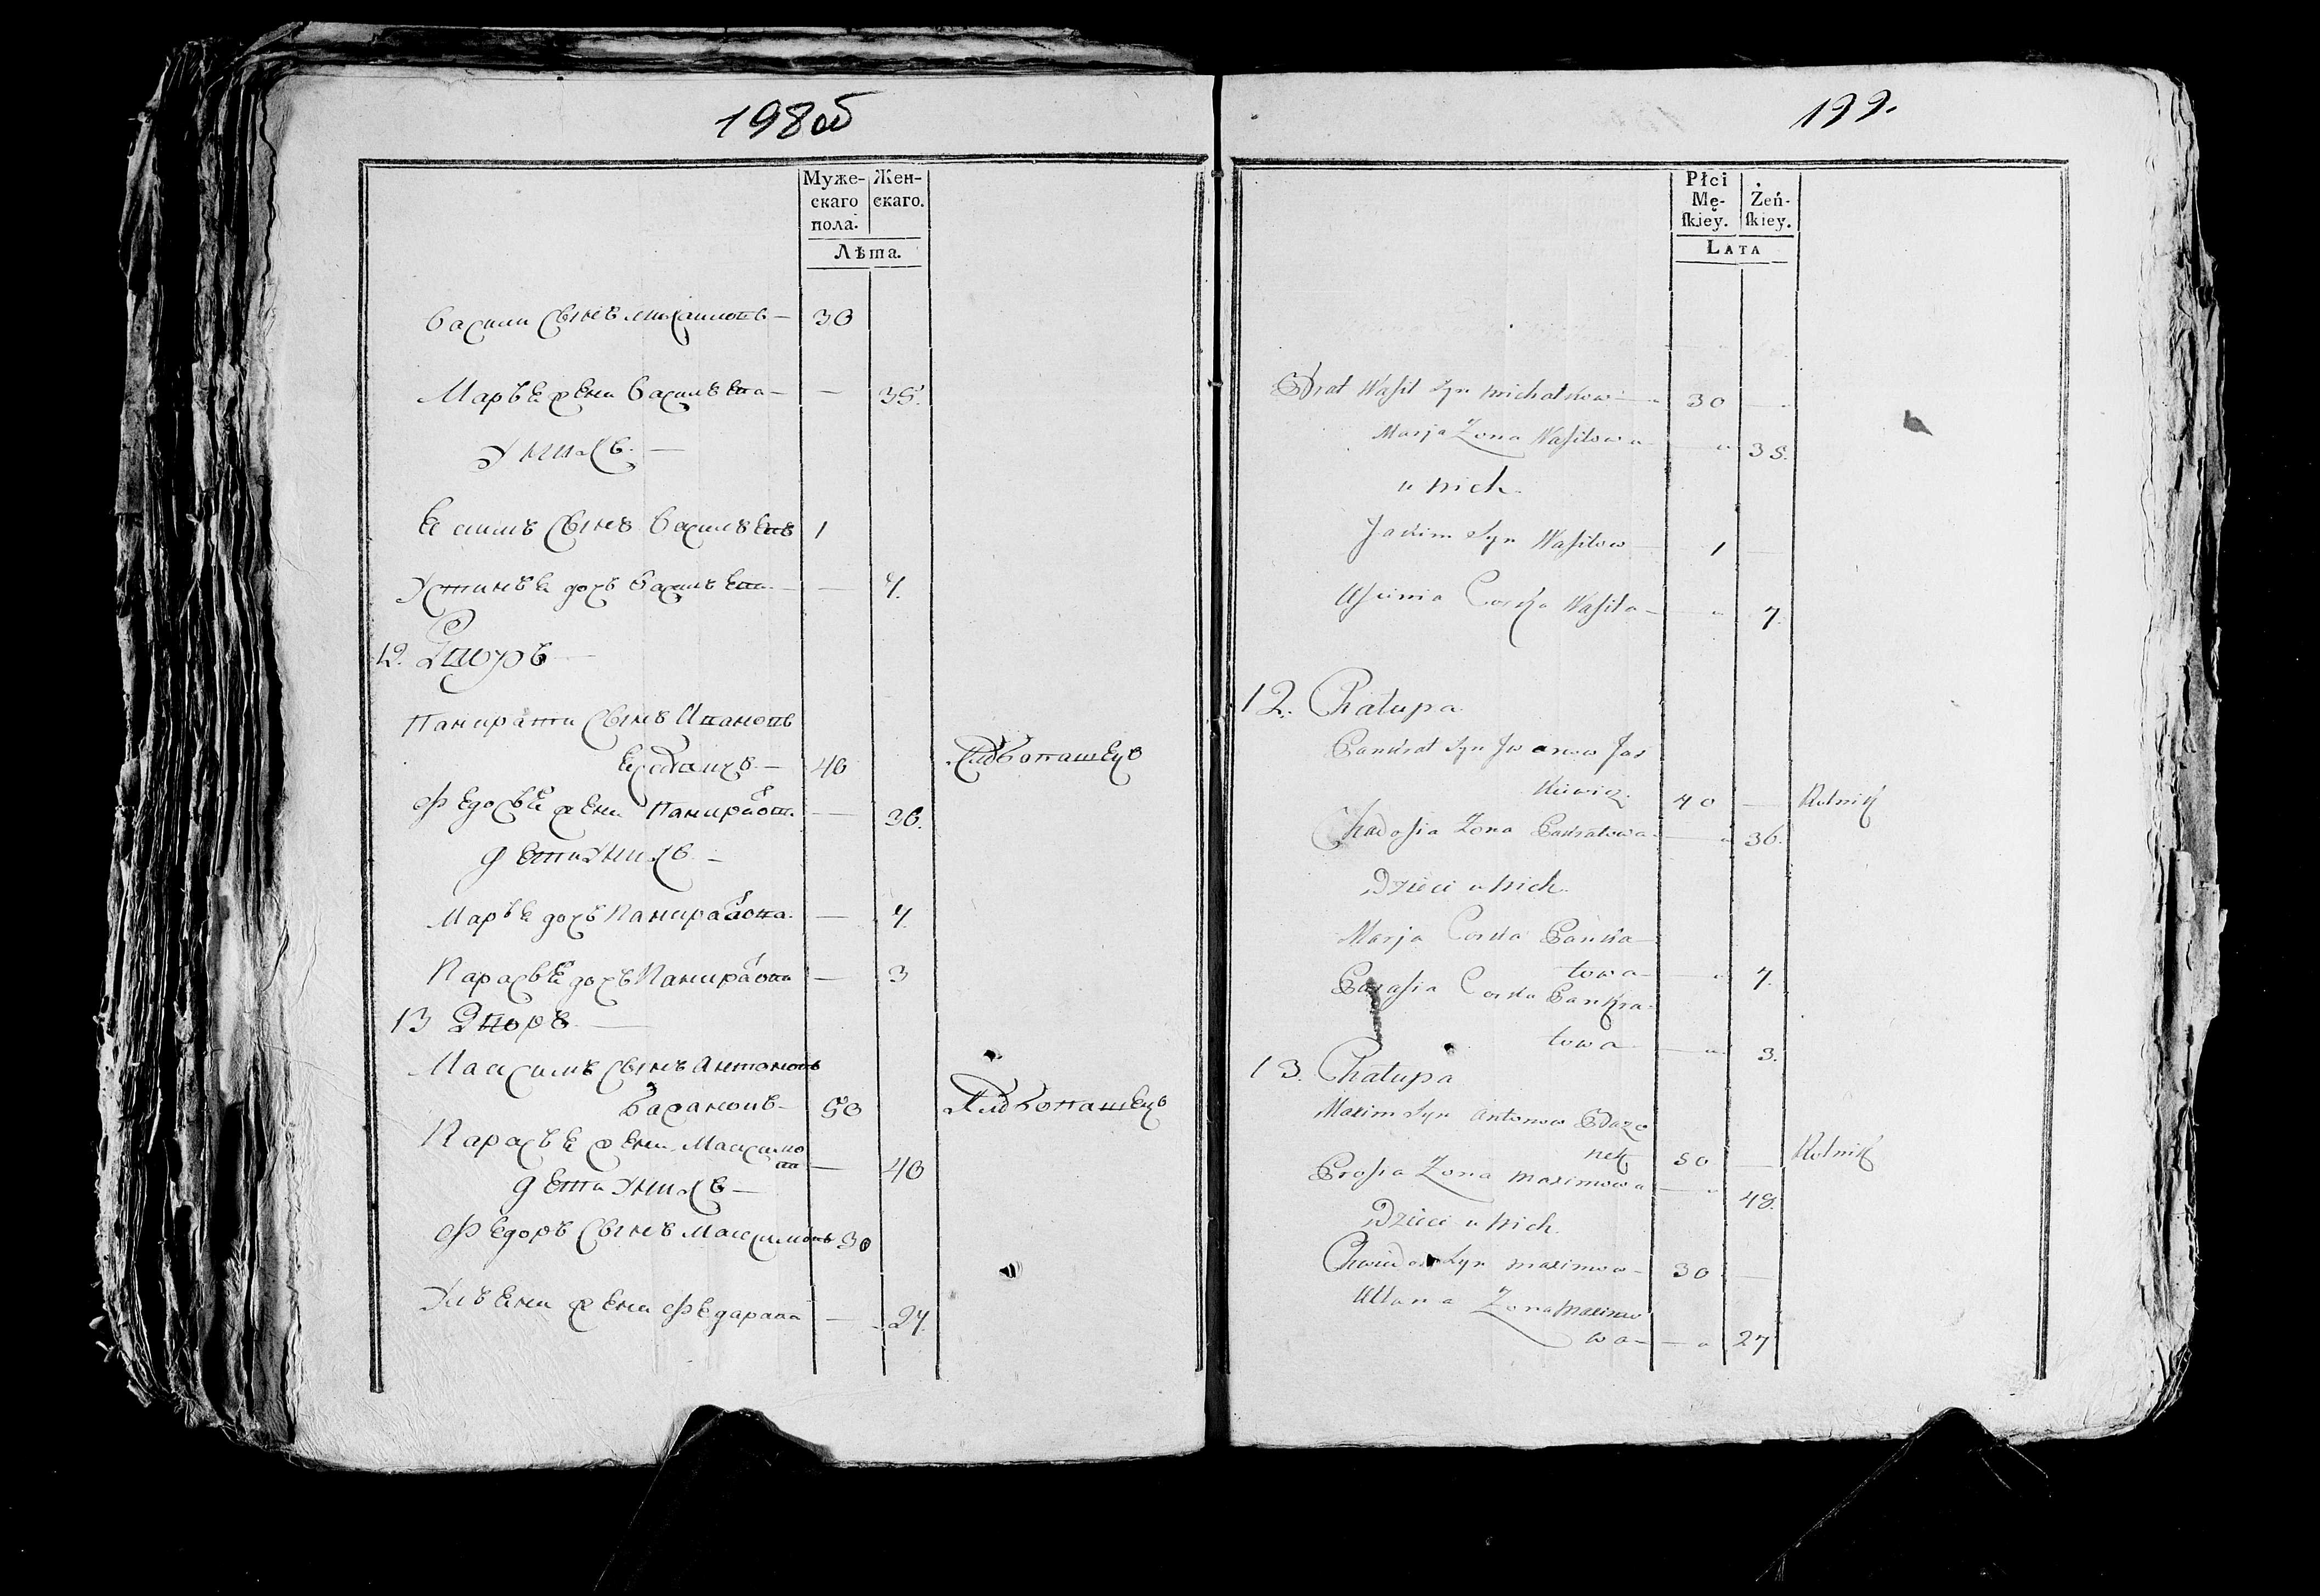 198 об
Муже-
скаго
пола.
Жен-
скаго.
Лѣта.
Васили сынъ Михаиловъ — 30
Маръя жена Васильева — — 35.
У нихъ. —
Васильевъ 1
Устинъя дочъ Васильева — — 7.
12. Дворъ —
Панкрати сынъ Ивановъ
40 Хлѣбопашецъ
Федосъя жена — 36.
Дети у нихъ —
Маръя дочъ Панкратова. — 7.
Парасъя дочъ Панкратова — 3
13 Дворъ —
Максимъ сынъ Антоновъ
Бажановъ — 50 Хлѣбопашецъ
Парасъя жена Максимо
ва — 40
Дети у нихъ —
Федоръ сынъ Максимовъ 30
Улъяна жена Федарава — 27.
199.
Płci
Mę-
ſkiey.
Żeń-
ſkiey.
LATA
Brat Waſil Syn Michałkow — 30 —
Marja Zona Waſilowa — 35.
u nich.
Jakim Syn Waſilow — 1 —
Uſcinia Corka Waſila — 7.
12. Chałupa
Pankrat Syn Jwanow Jas
kiewicz. 40 — Rolnik
Chadoſia Zona Pankratowa — 36.
Dzieci u nich.
Marja Corka Pankra—
towa — 7.
Paraſia Corka Pankra-
towa — 3.
13. Chałupa
Maxim Syn Antonow Baza
nek 50 — Rolnik
Proſia Zona Maximowa — 48.
Dzieci u nich.
Chwiedor Syn Maximow — 30 —
Ullana Zona Maximo
wa — 27